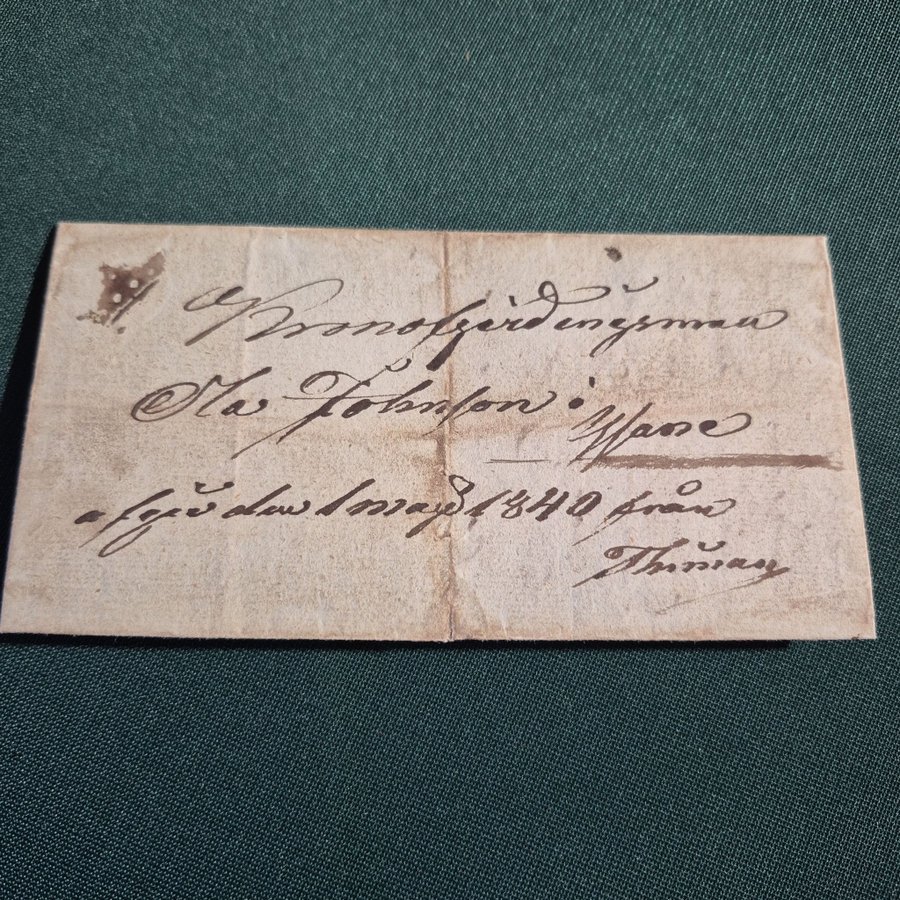 Kronofjerdingsman
Ola Johnson i
Wane
afgår den 1 maji 1840 från
Thuman